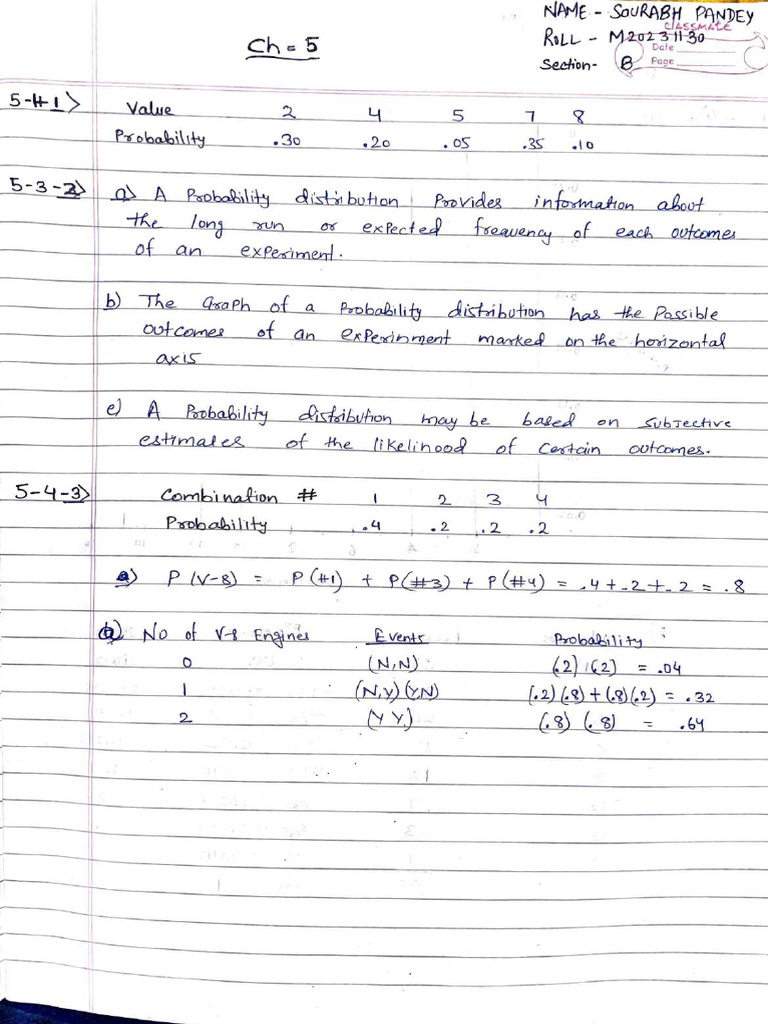 NAME - SOURABH PANDEY
classmate
ROLL - M20231130
Date
Section- B
Page
Ch = 5
5-1>
Value 2 4 5 7 8
Probability .30 .20 .05 .35 .10
5-3-2> a) A Probability distribution Provides information about
the long run or expected frequency of each outcomes
of an experiment.
b) The Graph of a Probability distribution has the Possible
outcomes of an experinment marked on the horizontal
axis
c) A Probability distribution may be based on subjective
estimates of the likelinood of certain outcomes.
5-4-3> Combination # 1 2 3 4
Probability .4 .2 .2 .2
a) P (V-8) = P (#1) + P(#3) + P(#4) = .4 + .2 + .2 = .8
b) No of V-8 Engines Events Probability
0 (N,N) (.2) (.2) = .04
1 (N,Y) (Y,N) (.2)(.8) + (.8)(.2) = .32
2 (Y Y) (.8) (.8) = .64